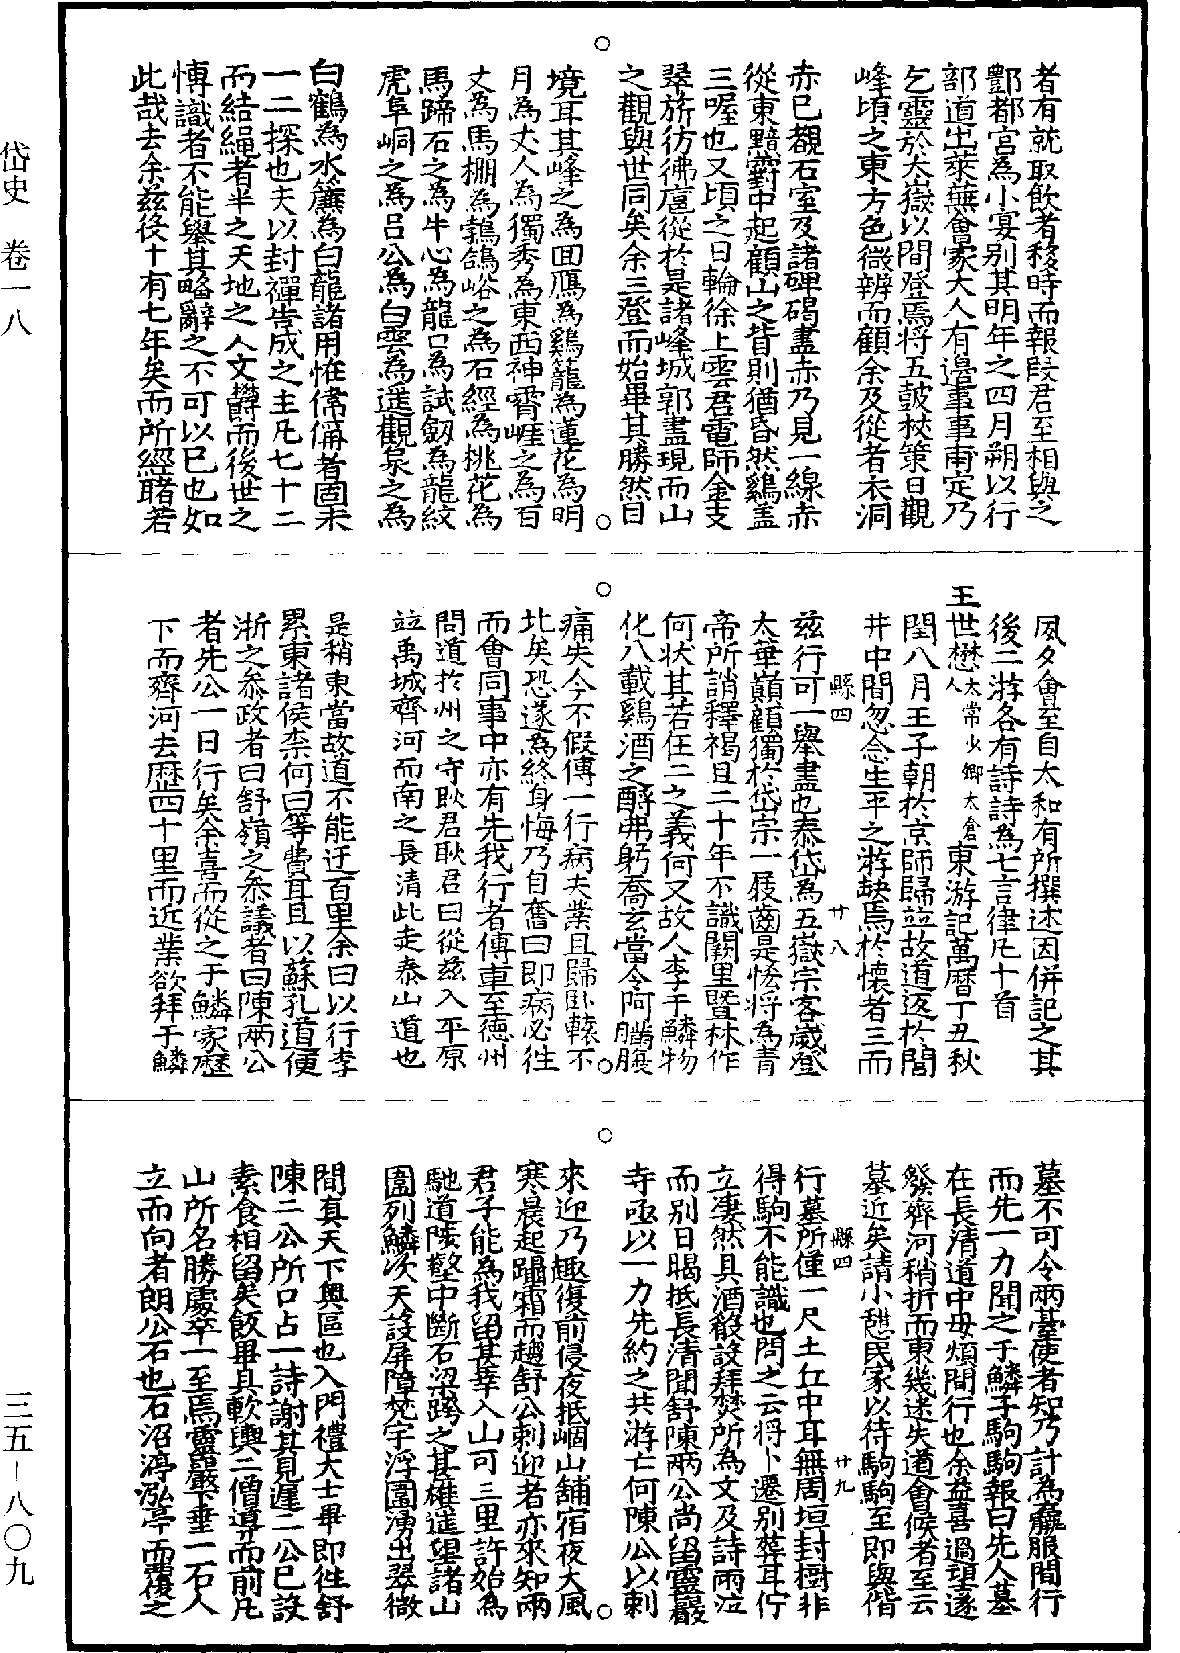 者有就取飲者移時而報叚君至相與之
酆都宮為小宴別其明年之四月朔以行
部道出萊蕪會家大人有邉事事甫定乃
乞靈於大嶽以間登焉將五皷杖策日觀
峰頃之東方色微辨而顧余及從者衣洞
赤已覩石室及諸碑碣盡赤乃見一線赤
從東黯靆中起顧山之背則猶昏然鷄盖
三喔也又頃之日輪徐上雲君電師金支
翠旂彷彿扈從於是諸峰城郭盡現而山
之觀與世同矣余三登而始畢其勝然目
境耳其峰之為囬鴈為鷄籠為蓮花為明
月為丈人為獨秀為東西神霄崕之為百
丈為馬棚為鵓鴿峪之為石經為桃花為
馬蹄石之為牛心為龍口為試劒為龍紋
虎阜峒之為呂公為白雲為遥觀泉之為
白鶴為水簾為白龍諸用恠偉偁者固未
一二探也夫以封禪告成之主凡七十二
而結繩者半之天地之人文欝而後世之
慱識者不能舉其略辭之不可以已也如
此哉去余兹役十有七年矣而所經睹若
夙夕會至自太和有所撰述因併記之其
後二游各有詩詩為七言律凡十首
王世懋太常少卿太倉人東游記萬曆丁丑秋
閏八月王子朝於京師歸竝故道返於閭
井中間忽念生平之游缺焉於懷者三而
兹行可一舉盡也泰岱為五嶽宗客嵗登
太華巔顧獨於岱宗一屐齒是恡將為青
帝所誚釋褐且二十年不識闕里暨林作
何狀其若在二之義何又故人李于鱗物
化八載鷄酒之酹弗躬喬玄當令阿臑腹
痛失今不假傳一行病夫業且歸卧轅不
北矣恐遂為終身悔乃自奮曰即病必徃
而會同事中亦有先我行者傳車至德州
問道於州之守耿君耿君曰從兹入平原
竝禹城齊河而南之長清此走泰山道也
是稍東當故道不能迂百里余曰以行李
累東諸侯柰何曰等費耳且以蘇孔道便
浙之叅政者曰舒嶺之叅議者曰陳兩公
者先公一日行矣余喜而從之于鱗家歷
下而齊河去歴四十里而近業欲拜于鱗
墓不可令兩臺使者知乃計為羸服間行
而先一力聞之于鱗子駒駒報曰先人墓
在長清道中毋煩間行也余益喜過望遂
發齊河稍折而東幾迷失道會候者至云
墓近矣請小憩民家以待駒駒至即與偕
行墓所僅一尺土丘中耳無周垣封樹非
得駒不能識也問之云將卜遷別葬耳佇
立淒然具酒殽設拜焚所為文及詩兩泣
而別日暍抵長清聞舒陳兩公尚留靈巖
寺亟以一力先約之共游亡何陳公以刺
來迎乃趣復前侵夜抵崮山舖宿夜大風
寒晨起躡霜而趨舒公刺迎者亦來知兩
君子能為我留甚幸入山可三里許始為
馳道陵壑中斷石梁跨之甚雄遥望諸山
圍列鱗次天設屏障梵宇浮圖湧出翠微
間真天下奥區也入門禮大士畢即徃舒
陳二公所口占一詩謝其見遲二公已設
素食相留矣飯畢具軟輿二僧導而前凡
山所名勝處卒一至焉靈巖下垂一石人
立而向者朗公石也石沼渟泓亭而覆之
縣四
廿八
縣四
廿九
岱史　卷一八
三五－八〇九